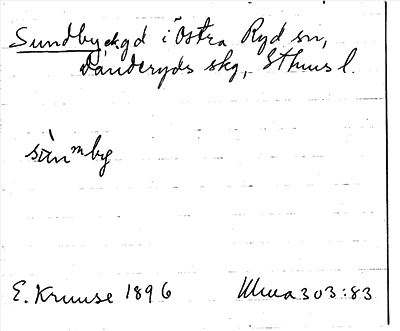 Sundby, kgd i Östra Ryd sn,
Danderyds skg, Sthms l.
sùnmby
E. Kruuse 1896 Ulma 303:83